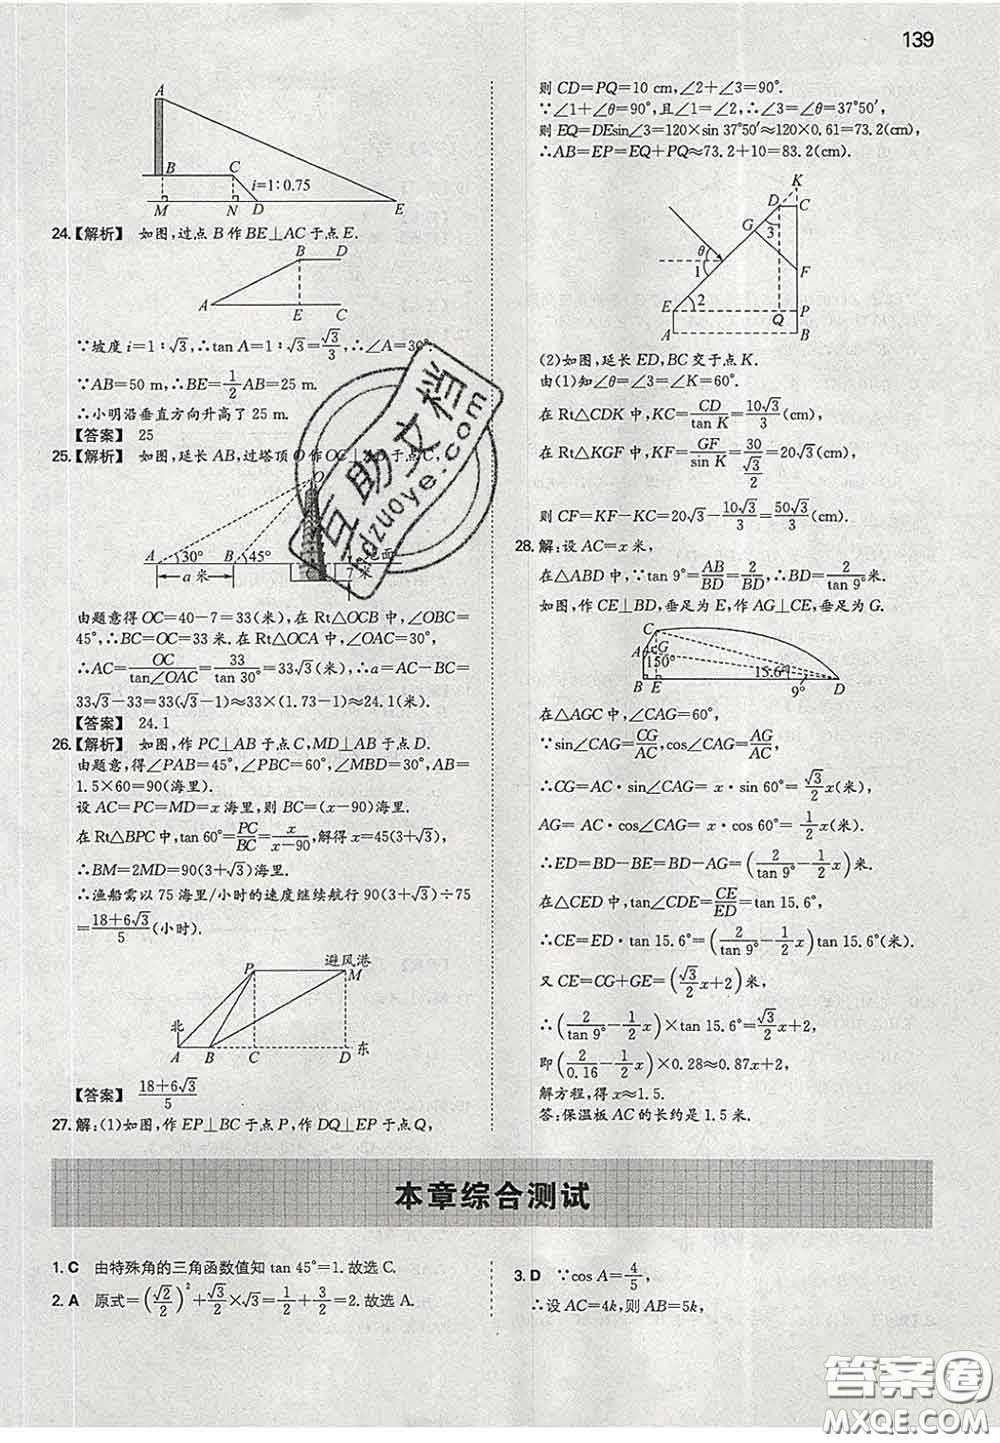 139
A
B
C
i=1:0.75
M
N
D
E
24.【解析】 如图,过点 B 作 BE⊥AC 于点 E.
B
D
A
E
C
∵坡度 i=1:√3,∴tan A=1:√3=√3/3,∴∠A=30°.
∵AB=50 m,∴BE=1/2AB=25 m.
∴小明沿垂直方向升高了 25 m.
【答案】 25
25.【解析】 如图,延长 AB,过塔顶 O 作 OC⊥AB 于点 C,
O
A
30°
B
45°
地面
a 米
7 米
由题意得 OC=40-7=33(米),在 Rt△OCB 中,∠OBC=
45°,∴BC=OC=33 米.在 Rt△OCA 中,∠OAC=30°,
∴AC=OC/tan∠OAC=33/tan 30°=33√3(米),∴a=AC-BC=
33√3-33=33(√3-1)≈33×(1.73-1)≈24.1(米).
【答案】 24.1
26.【解析】 如图,作 PC⊥AB 于点 C,MD⊥AB 于点 D.
由题意,得∠PAB=45°,∠PBC=60°,∠MBD=30°,AB=
1.5×60=90(海里).
设 AC=PC=MD=x 海里,则 BC=(x-90)海里.
在 Rt△BPC 中,tan 60°=PC/BC=x/(x-90),解得 x=45(3+√3)
∴BM=2MD=90(3+√3)海里.
∴渔船需以 75 海里/小时的速度继续航行 90(3+√3)÷75
=(18+6√3)/5(小时).
避风港
P
M
北
A
B
C
D
东
【答案】 (18+6√3)/5
27.解:(1)如图,作 EP⊥BC 于点 P,作 DQ⊥EP 于点 Q,
则 CD=PQ=10 cm,∠2+∠3=90°.
∵∠1+∠θ=90°,且∠1=∠2,∴∠3=∠θ=37°50′,
则 EQ=DEsin∠3=120×sin 37°50′≈120×0.61=73.2(cm),
∴AB=EP=EQ+PQ≈73.2+10=83.2(cm).
K
D
C
G
3
θ
1
F
E
2
P
Q
A
B
(2)如图,延长 ED,BC 交于点 K.
由(1)知∠θ=∠3=∠K=60°.
在 Rt△CDK 中,KC=CD/tan K=10√3/3(cm),
在 Rt△KGF 中,KF=GF/sin K=30/(√3/2)=20√3(cm),
则 CF=KF-KC=20√3-10√3/3=50√3/3(cm).
28.解:设 AC=x 米,
在△ABD 中,∵tan 9°=AB/BD=2/BD,∴BD=2/tan 9°米.
如图,作 CE⊥BD,垂足为 E,作 AG⊥CE,垂足为 G.
C
A
G
150°
15.6°
B
E
9°
D
在△AGC 中,∠CAG=60°,
∵sin∠CAG=CG/AC,cos∠CAG=AG/AC,
∴CG=AC·sin∠CAG=x·sin 60°=√3/2x(米),
AG=AC·cos∠CAG=x·cos 60°=1/2x(米).
∴ED=BD-BE=BD-AG=(2/tan 9°-1/2x)米.
在△CED 中,tan∠CDE=CE/ED=tan 15.6°,
∴CE=ED·tan 15.6°=(2/tan 9°-1/2x)tan 15.6°(米).
又 CE=CG+GE=(√3/2x+2)米,
∴(2/tan 9°-1/2x)×tan 15.6°=√3/2x+2,
即(2/0.16-1/2x)×0.28≈0.87x+2.
解方程,得 x≈1.5.
答:保温板 AC 的长约是 1.5 米.
本章综合测试
1. C 由特殊角的三角函数值知 tan 45°=1.故选 C.
2. A 原式=(√2/2)²+√3/2×√3=1/2+3/2=2.故选 A.
3. D ∵cos A=4/5,
∴设 AC=4k,则 AB=5k,
互助文档
hdzuoye.com
答案圈
MXQE.COM